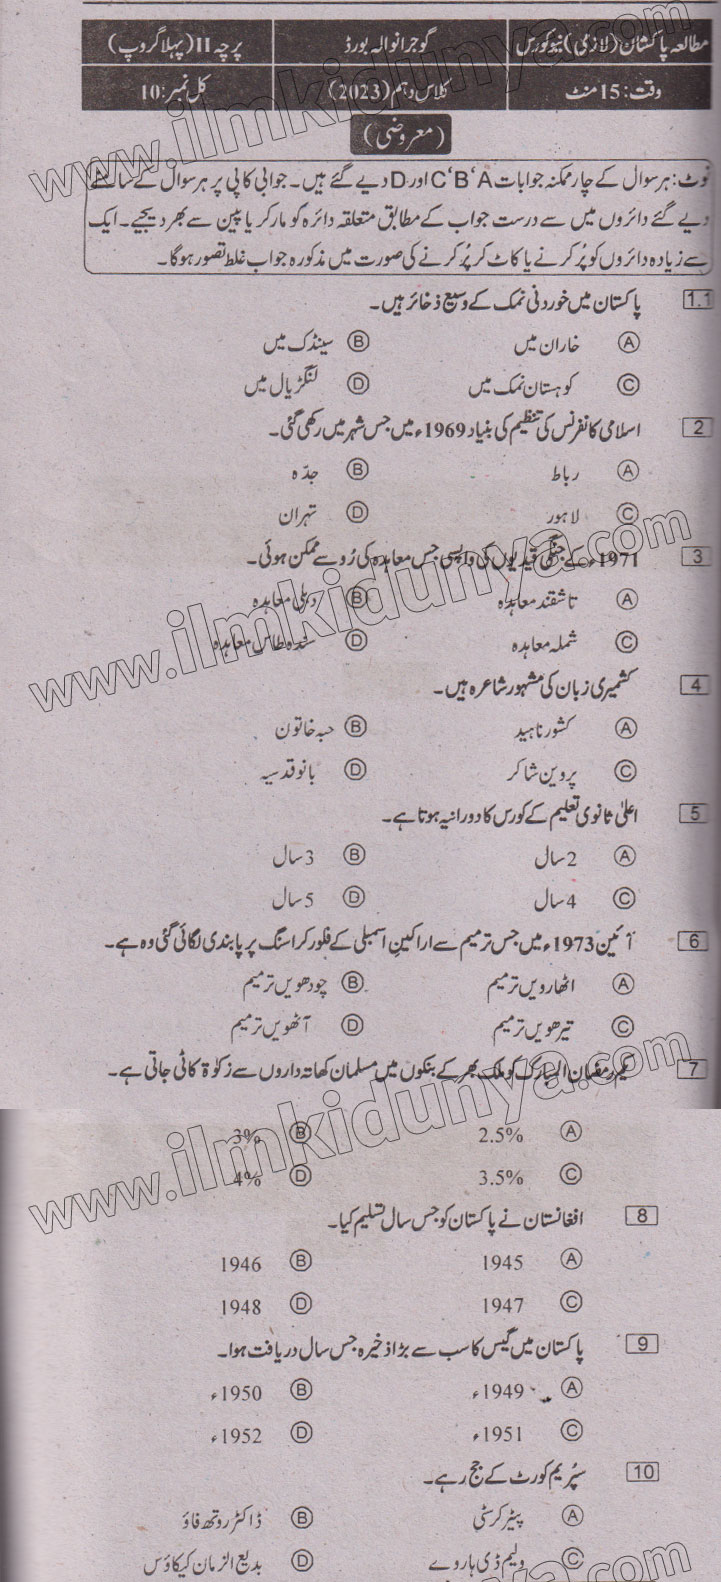 مطالعہ پاکستان (لازمی) نیو کورس گوجرانوالہ بورڈ پرچہ II (پہلا گروپ)
وقت: 15 منٹ کلاس دہم (2023) کل نمبر: 10
(معروضی)
نوٹ: ہر سوال کے چار ممکنہ جوابات A،B،C اور D دیے گئے ہیں۔ جوابی کاپی پر ہر سوال کے سامنے
دیے گئے دائروں میں سے درست جواب کے مطابق متعلقہ دائرہ کو مارکر یا پین سے بھر دیجیے۔ ایک
سے زیادہ دائروں کو پُر کرنے یا کاٹ کر پُر کرنے کی صورت میں مذکورہ جواب غلط تصور ہوگا۔
1.1 پاکستان میں خوردنی نمک کے وسیع ذخائر ہیں۔
A خاران میں B سینڈک میں
C کوہستان نمک میں D لنگڑیال میں
2 اسلامی کانفرنس کی تنظیم کی بنیاد 1969ء میں جس شہر میں رکھی گئی۔
A رباط B جدّہ
C لاہور D تہران
3 1971ء کے جنگی قیدیوں کی واپسی جس معاہدہ کی رُو سے ممکن ہوئی۔
A تاشقند معاہدہ B دہلی معاہدہ
C شملہ معاہدہ D سندھ طاس معاہدہ
4 کشمیری زبان کی مشہور شاعرہ ہیں۔
A کشور ناہید B حبہ خاتون
C پروین شاکر D بانو قدسیہ
5 اعلیٰ ثانوی تعلیم کے کورس کا دورانیہ ہوتا ہے۔
A 2 سال B 3 سال
C 4 سال D 5 سال
6 آئین 1973ء میں جس ترمیم سے اراکینِ اسمبلی کے فلور کراسنگ پر پابندی لگائی گئی وہ ہے۔
A اٹھارویں ترمیم B چودھویں ترمیم
C تیرھویں ترمیم D آٹھویں ترمیم
7 یکم رمضان المبارک کو ملک بھر کے بنکوں میں مسلمان کھاتہ داروں سے زکوٰۃ کاٹی جاتی ہے۔
A 2.5% B 3%
C 3.5% D 4%
8 افغانستان نے پاکستان کو جس سال تسلیم کیا۔
A 1945 B 1946
C 1947 D 1948
9 پاکستان میں گیس کا سب سے بڑا ذخیرہ جس سال دریافت ہوا۔
A 1949ء B 1950ء
C 1951ء D 1952ء
10 سپُریم کورٹ کے جج رہے۔
A پیٹر کرسٹی B ڈاکٹر روتھ فاؤ
C ولیم ڈی ہاروے D بدیع الزمان کیکاؤس
www.ilmkidunya.com
www.ilmkidunya.com
www.ilmkidunya.com